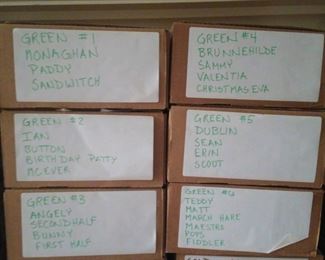 GREEN #1
MONAGHAN
PADDY
SANDWITCH
GREEN #2
IAN
BUTTON
BIRTHDAY PATTY
MCEVER
GREEN #3
ANGELY
SECONDHALF
BUNNY
FIRST HALF
GREEN #4
BRUNNEHILDE
SAMMY
VALENTIA
CHRISTMAS EVA
GREEN #5
DUBLIN
SEAN
ERIN
SCOUT
GREEN #6
TEDDY
MATT
MARCH HARE
MAESTRO
POPS
FIDDLER